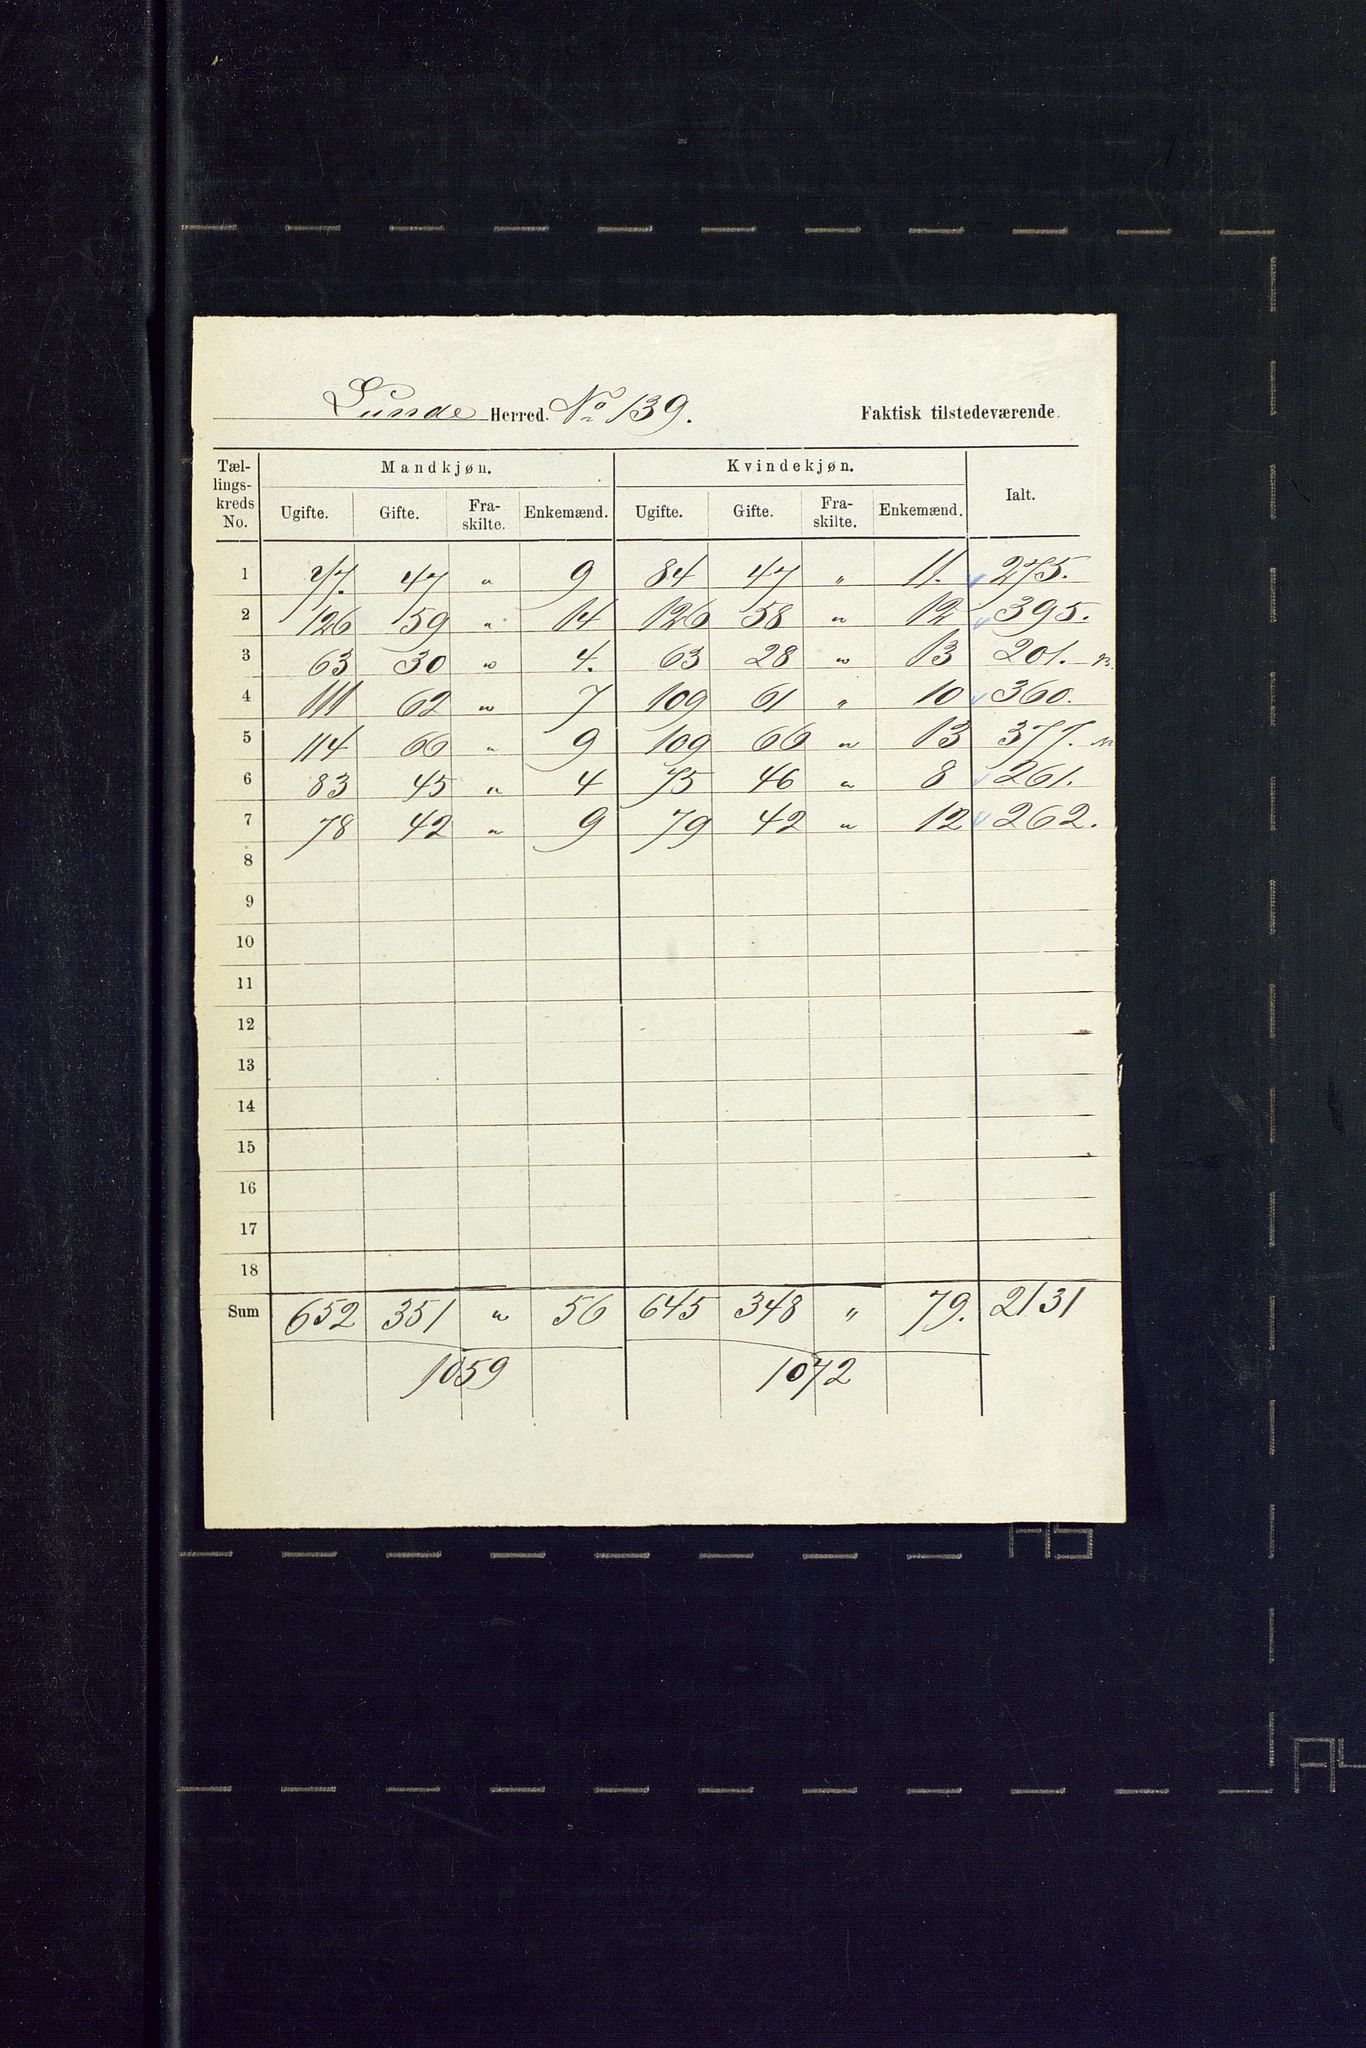 Lunde Herred. No 139. Faktisk tilstedeværende.
Tæl-lings-kreds No. Mandkjøn. Kvindekjøn. Ialt.
Ugifte. Gifte. Fra-skilte. Enkemænd. Ugifte. Gifte. Fra-skilte. Enkemænd.
1 77. 47 " 9 84 47 " 11. 275.
2 126 59 " 14 126 58 " 12 395.
3 63 30 " 4. 63 28 " 13 201.
4 111 62 " 7 109 61 " 10 360.
5 114 66 " 9 109 66 " 13 377.
6 83 45 " 4 75 46 " 8 261.
7 78 42 " 9 79 42 " 12 262.
8
9
10
11
12
13
14
15
16
17
18
Sum 652 351 " 56 645 348 " 79. 2131
1059 1072
A5
A4